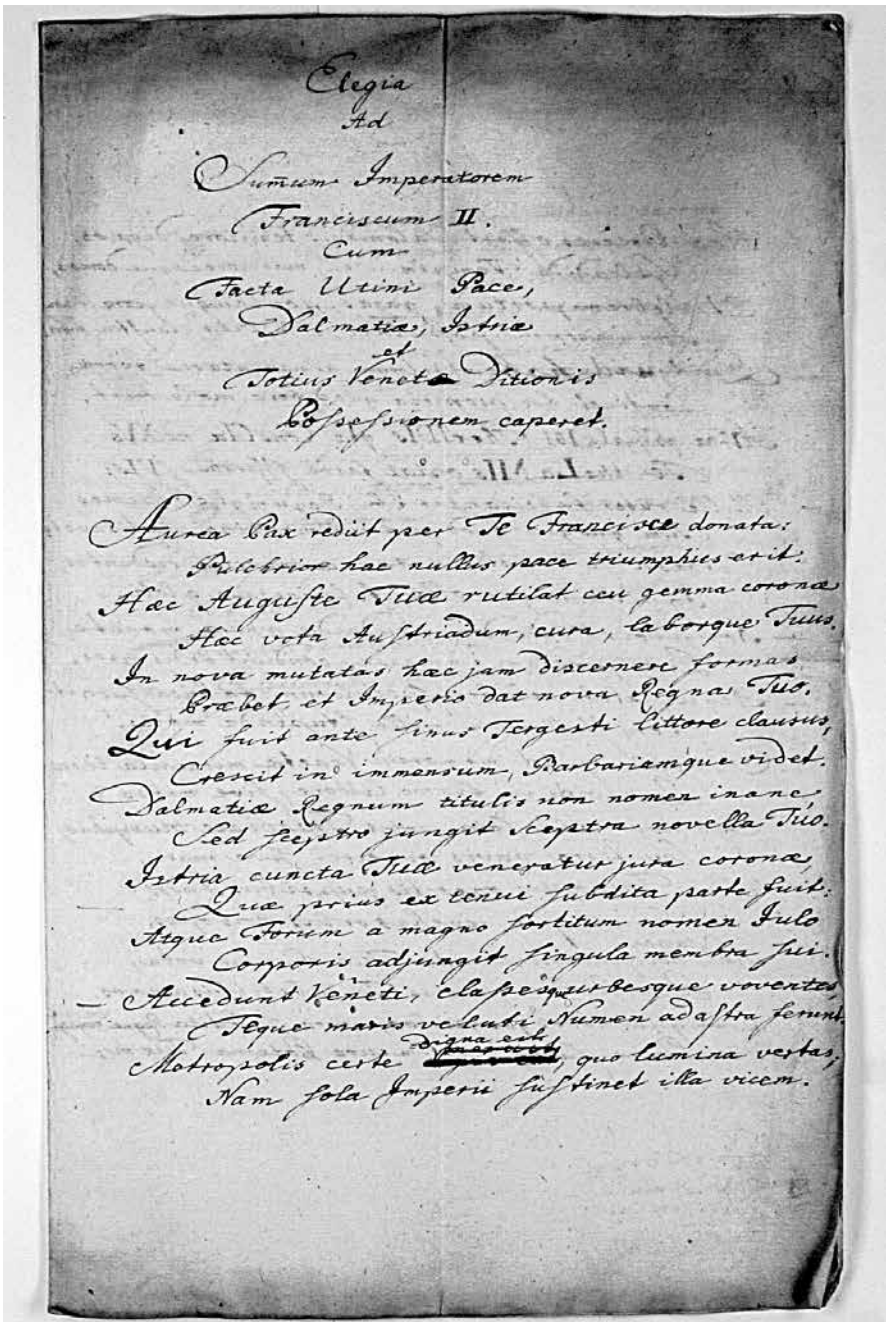 Elegia
Ad
Sum̅um Imperatorem
Franciscum II.
Cum
Facta Utini Pace,
Dalmatiæ, Istriæ
et
Totius Venetæ Ditionis
Possessionem caperet.
Aurea Pax rediit per Te Francisce donata:
Pulchrior hac nullus pace triumphus erit:
Hæc Auguste Tuæ rutilat ceu gemma coronæ
Hæc vota Austriadum, cura, laborque Tuus.
In nova mutatas hæc jam discernere formas
Præbet, et Imperio dat nova Regna Tuo.
Qui fuit ante sinus Tergesti littore clausus,
Crescit in immensum, Barbariamque videt.
Dalmatiæ Regnum titulis non nomen inane
Sed sceptro jungit sceptra novella Tuo.
Istria cuncta Tuæ veneratur jura coronæ,
Quæ prius ex tenui subdita parte fuit:
Atque Forum a magno sortitum nomen Iulo
Corporis adjungit singula membra sui.
Accedunt Veneti, classesque urbesque voventes,
Teque maris veluti Numen ad astra ferunt.
Metropolis certe digna est, quo lumina vertas,
Nam sola Imperii sustinet illa vicem.